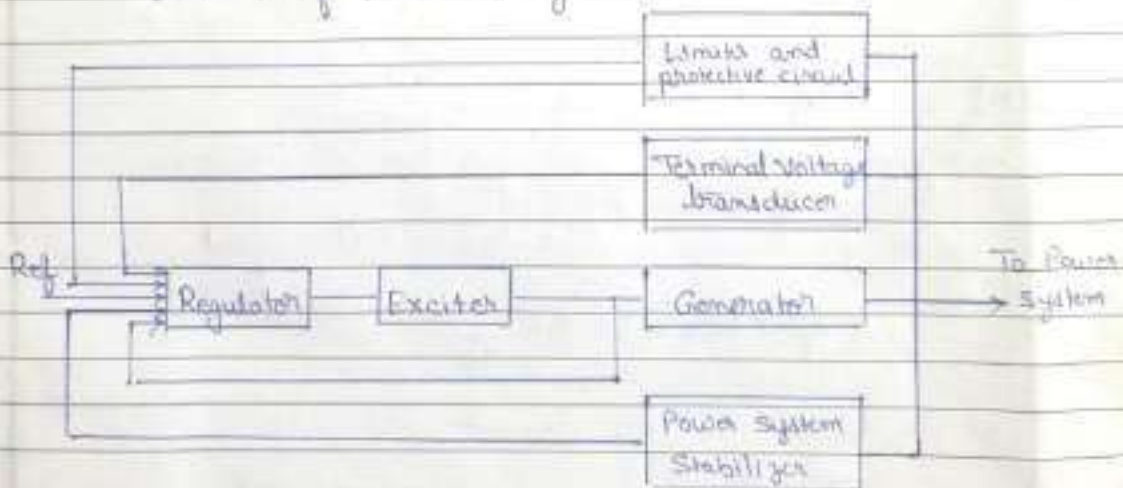 Limits and
protective circuit
Terminal Voltage
transducer
Ref
Regulator
Exciter
Generator
To Power
System
Power System
Stabilizer